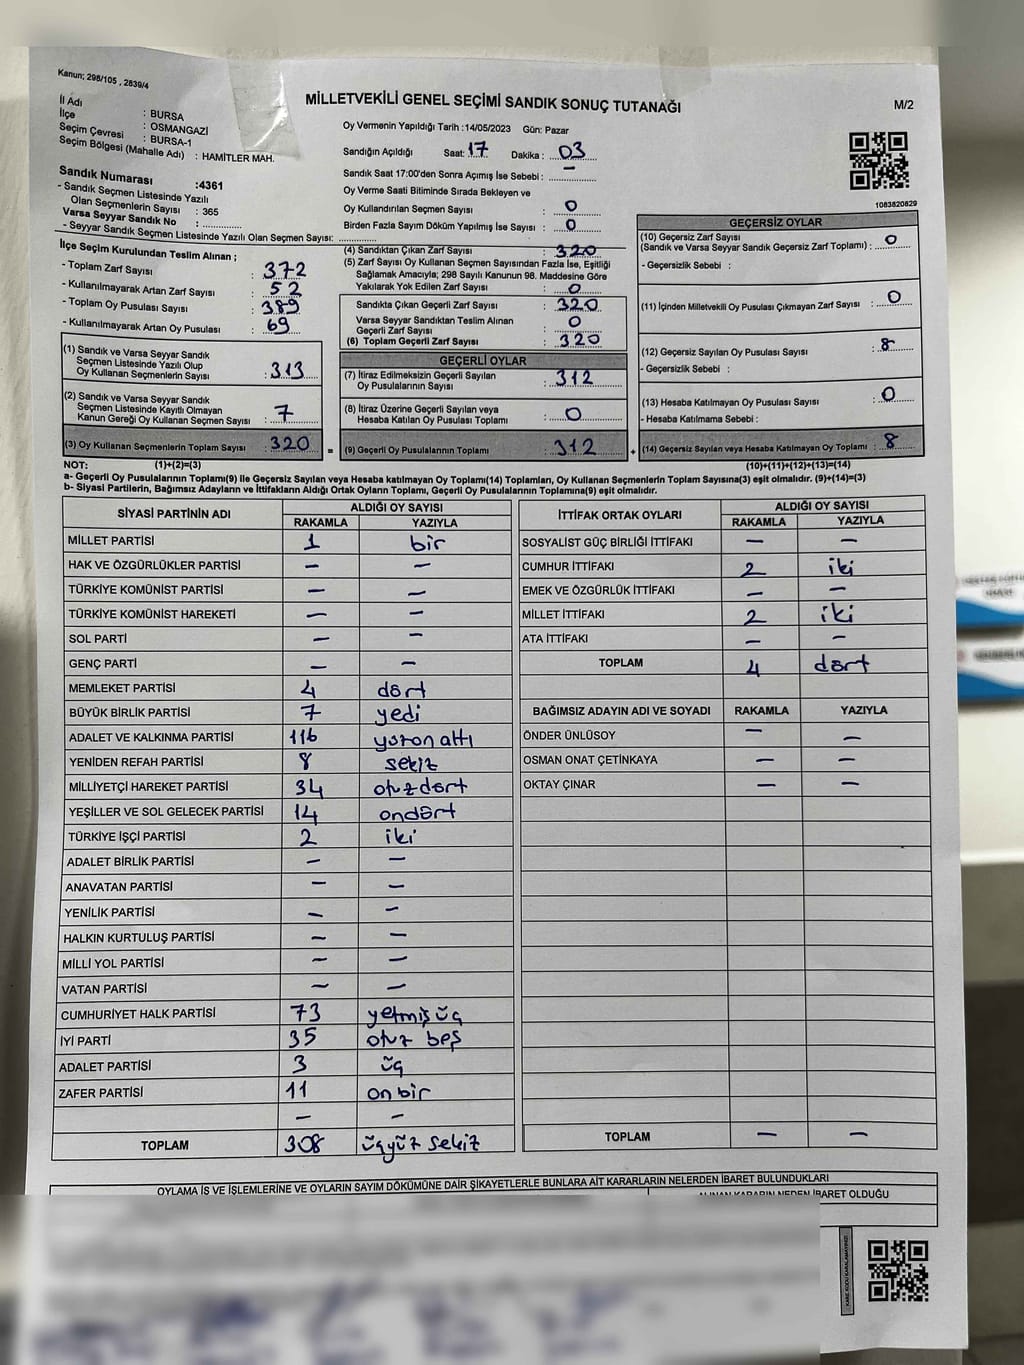 Kanun; 298/105 , 2839/4
MİLLETVEKİLİ GENEL SEÇİMİ SANDIK SONUÇ TUTANAĞI
M/2
İl Adı : BURSA
İlçe : OSMANGAZİ
Seçim Çevresi : BURSA-1
Seçim Bölgesi (Mahalle Adı) : HAMİTLER MAH.
Sandık Numarası :4361
- Sandık Seçmen Listesinde Yazılı
Olan Seçmenlerin Sayısı : 365
Varsa Seyyar Sandık No :
- Seyyar Sandık Seçmen Listesinde Yazılı Olan Seçmen Sayısı:
Oy Vermenin Yapıldığı Tarih :14/05/2023 Gün: Pazar
Sandığın Açıldığı Saat: 17 Dakika : 03
Sandık Saat 17:00'den Sonra Açımış İse Sebebi : —
Oy Verme Saati Bitiminde Sırada Bekleyen ve
Oy Kullandırılan Seçmen Sayısı : 0
Birden Fazla Sayım Döküm Yapılmış İse Sayısı : 0
1083820829
İlçe Seçim Kurulundan Teslim Alınan ;
- Toplam Zarf Sayısı : 372
- Kullanılmayarak Artan Zarf Sayısı : 52
- Toplam Oy Pusulası Sayısı : 389
- Kullanılmayarak Artan Oy Pusulası : 69
(1) Sandık ve Varsa Seyyar Sandık
Seçmen Listesinde Yazılı Olup
Oy Kullanan Seçmenlerin Sayısı : 313
(2) Sandık ve Varsa Seyyar Sandık
Seçmen Listesinde Kayıtlı Olmayan
Kanun Gereği Oy Kullanan Seçmen Sayısı : 7
(3) Oy Kullanan Seçmenlerin Toplam Sayısı : 320 =
(4) Sandıktan Çıkan Zarf Sayısı : 320
(5) Zarf Sayısı Oy Kullanan Seçmen Sayısından Fazla İse, Eşitliği
Sağlamak Amacıyla; 298 Sayılı Kanunun 98. Maddesine Göre
Yakılarak Yok Edilen Zarf Sayısı : 0
Sandıkta Çıkan Geçerli Zarf Sayısı : 320
Varsa Seyyar Sandıktan Teslim Alınan
Geçerli Zarf Sayısı : 0
(6) Toplam Geçerli Zarf Sayısı : 320
GEÇERLİ OYLAR
(7) İtiraz Edilmeksizin Geçerli Sayılan
Oy Pusulalarının Sayısı : 312
(8) İtiraz Üzerine Geçerli Sayılan veya
Hesaba Katılan Oy Pusulası Toplamı : 0
(9) Geçerli Oy Pusulalarının Toplamı : 312 +
GEÇERSİZ OYLAR
(10) Geçersiz Zarf Sayısı
(Sandık ve Varsa Seyyar Sandık Geçersiz Zarf Toplamı) : 0
- Geçersizlik Sebebi :
(11) İçinden Milletvekili Oy Pusulası Çıkmayan Zarf Sayısı : 0
(12) Geçersiz Sayılan Oy Pusulası Sayısı : 8
- Geçersizlik Sebebi :
(13) Hesaba Katılmayan Oy Pusulası Sayısı : 0
- Hesaba Katılmama Sebebi :
(14) Geçersiz Sayılan veya Hesaba Katılmayan Oy Toplamı : 8
NOT: (1)+(2)=(3) (10)+(11)+(12)+(13)=(14)
a- Geçerli Oy Pusulalarının Toplamı(9) ile Geçersiz Sayılan veya Hesaba katılmayan Oy Toplamı(14) Toplamları, Oy Kullanan Seçmenlerin Toplam Sayısına(3) eşit olmalıdır. (9)+(14)=(3)
b- Siyasi Partilerin, Bağımsız Adayların ve İttifakların Aldığı Ortak Oyların Toplamı, Geçerli Oy Pusulalarının Toplamına(9) eşit olmalıdır.
SİYASİ PARTİNİN ADI ALDIĞI OY SAYISI
RAKAMLA YAZIYLA
MİLLET PARTİSİ 1 bir
HAK VE ÖZGÜRLÜKLER PARTİSİ — —
TÜRKİYE KOMÜNİST PARTİSİ — —
TÜRKİYE KOMÜNİST HAREKETİ — —
SOL PARTİ — —
GENÇ PARTİ — —
MEMLEKET PARTİSİ 4 dört
BÜYÜK BİRLİK PARTİSİ 7 yedi
ADALET VE KALKINMA PARTİSİ 116 yüzon altı
YENİDEN REFAH PARTİSİ 8 sekiz
MİLLİYETÇİ HAREKET PARTİSİ 34 otuzdört
YEŞİLLER VE SOL GELECEK PARTİSİ 14 ondört
TÜRKİYE İŞÇİ PARTİSİ 2 iki
ADALET BİRLİK PARTİSİ — —
ANAVATAN PARTİSİ — —
YENİLİK PARTİSİ — —
HALKIN KURTULUŞ PARTİSİ — —
MİLLİ YOL PARTİSİ — —
VATAN PARTİSİ — —
CUMHURİYET HALK PARTİSİ 73 yetmiş üç
İYİ PARTİ 35 otuz beş
ADALET PARTİSİ 3 üç
ZAFER PARTİSİ 11 on bir
— —
TOPLAM 308 üçyüz sekiz
İTTİFAK ORTAK OYLARI ALDIĞI OY SAYISI
RAKAMLA YAZIYLA
SOSYALİST GÜÇ BİRLİĞİ İTTİFAKI — —
CUMHUR İTTİFAKI 2 iki
EMEK VE ÖZGÜRLÜK İTTİFAKI — —
MİLLET İTTİFAKI 2 iki
ATA İTTİFAKI — —
TOPLAM 4 dört
BAĞIMSIZ ADAYIN ADI VE SOYADI RAKAMLA YAZIYLA
ÖNDER ÜNLÜSOY — —
OSMAN ONAT ÇETİNKAYA — —
OKTAY ÇINAR — —
TOPLAM — —
OYLAMA İŞ VE İŞLEMLERİNE VE OYLARIN SAYIM DÖKÜMÜNE DAİR ŞİKAYETLERLE BUNLARA AİT KARARLARIN NELERDEN İBARET BULUNDUKLARI
ALINAN KARARIN NEDEN İBARET OLDUĞU